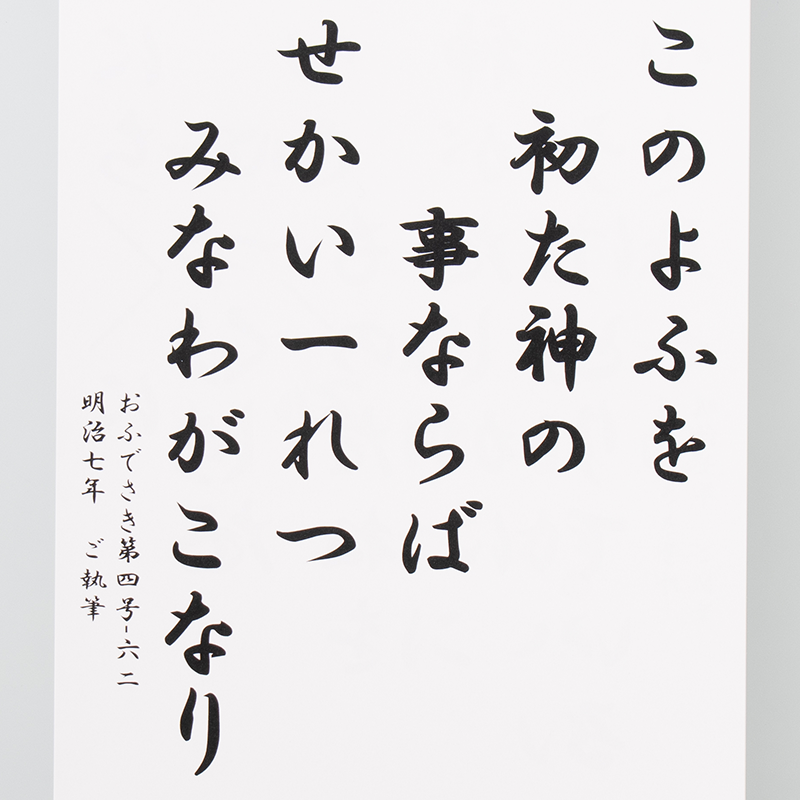 このよふを
初た神の
事ならば
せかい一れつ
みなわがこなり
おふでさき第四号-六二
明治七年　ご執筆